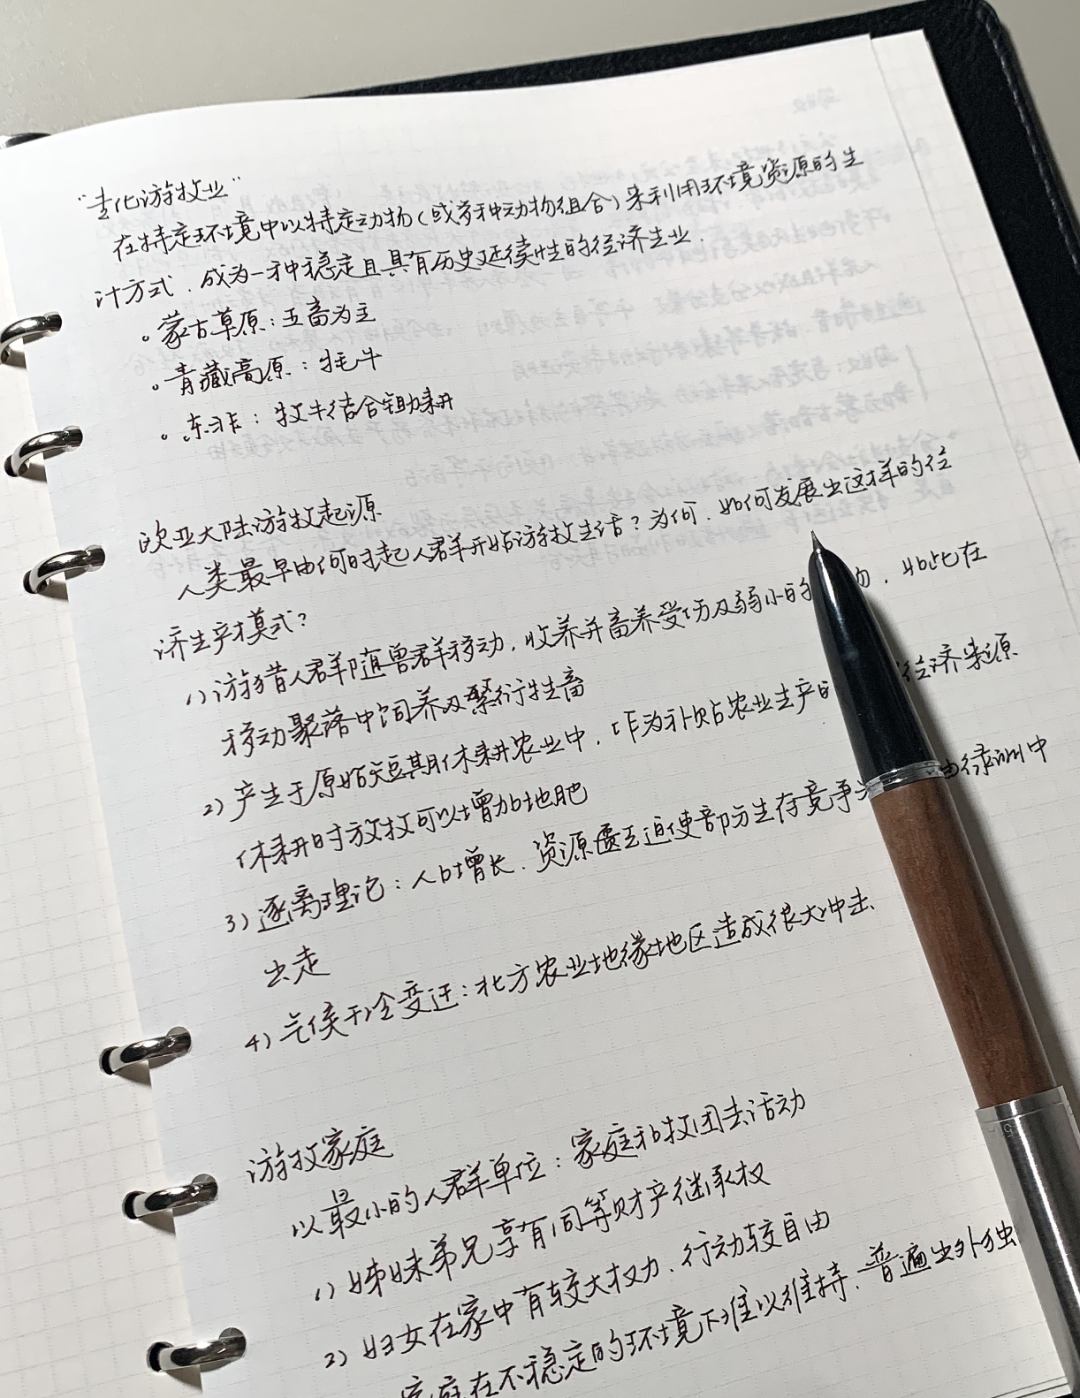 "专化游牧业"
在特定环境中以特定动物(或多种动物组合)来利用环境资源的生
计方式，成为一种稳定且具有历史延续性的经济生业.
。蒙古草原：五畜为主
。青藏高原：牦牛
。东非：牧牛结合锄耕
欧亚大陆游牧起源
人类最早由何时起人群开始游牧生活？为何、如何发展出这样的经
济生产模式？
1) 游猎人群随兽群移动，收养并畜养受伤及弱小的 物，如此在
移动聚落中饲养及繁衍牲畜
2) 产生于原始短期休耕农业中，作为补贴农业生产的 经济来源
休耕时放牧可以增加地肥
3) 逐离理论：人口增长、资源匮乏迫使部分生存竞争 由绿洲中
出走
4) 气候干冷变迁：北方农业边缘地区造成很大冲击、
游牧家庭
以最小的人群单位：家庭和牧团去活动
1) 姊妹弟兄享有同等财产继承权
2) 妇女在家中有较大权力，行动较自由
家庭在不稳定的环境下难以维持，普遍出外独